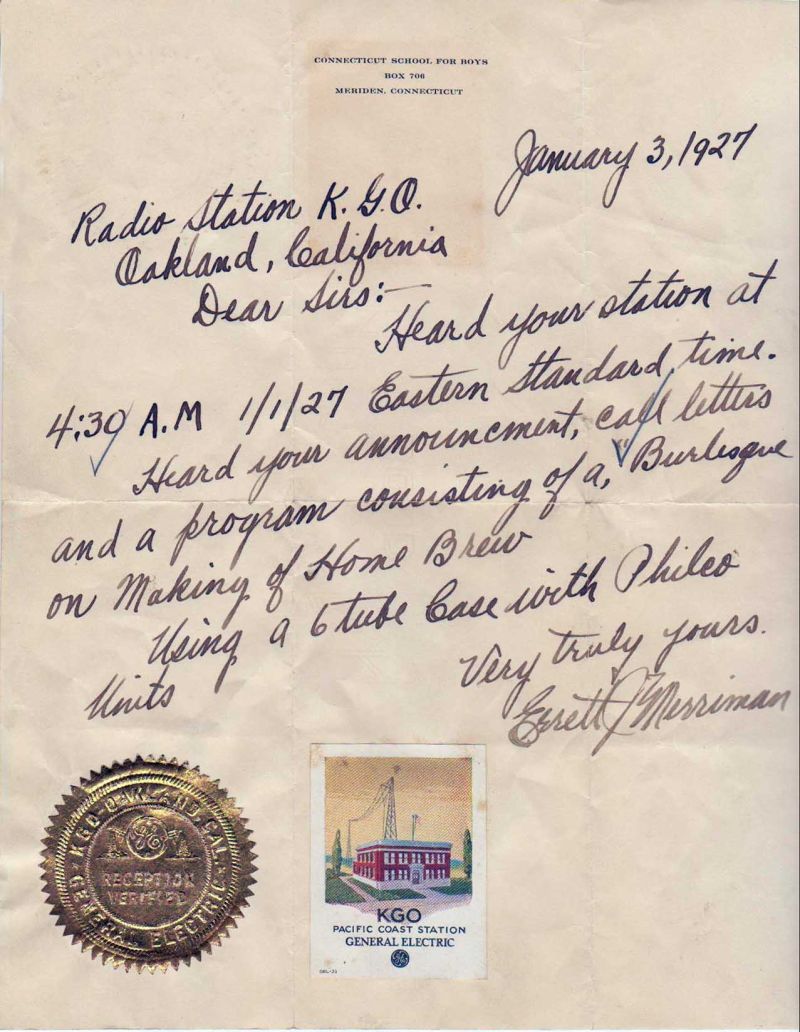 CONNECTICUT SCHOOL FOR BOYS
BOX 706
MERIDEN, CONNECTICUT
January 3, 1927
Radio Station K.G.O.
Oakland, California
Dear Sirs:-
Heard your station at
4:30 A.M 1/1/27 Eastern Standard time.
Heard your announcment, call letters
and a program consisting of a, "Burlesque
on Making of Home Brew
Using a 6 tube Case with Philco
Units
Very truly yours.
Everett J Merriman
KGO-OAKLAND CAL.
GE
RECEPTION
VERIFIED
GENERAL ELECTRIC
KGO
PACIFIC COAST STATION
GENERAL ELECTRIC
GE